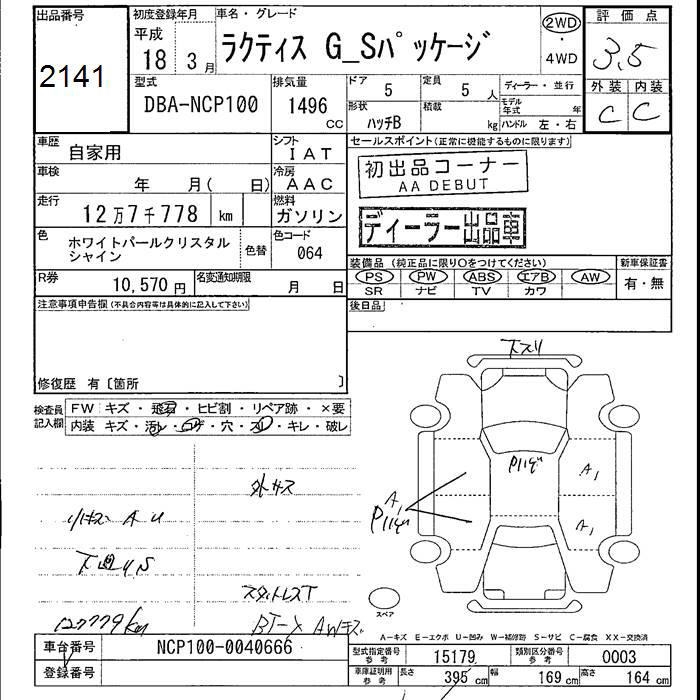 出品番号
2141
初度登録年月
平成
18 3月
車名・グレード
ラクティス G_Sパッケージ
2WD
・
4WD
評価点
3.5
外装 内装
C C
型式
DBA-NCP100
排気量
1496
CC
ドア
5
定員
5 人
形状
ハッチB
積載
kg
ディーラー・並行
モデル年式 年
ハンドル 左・右
車歴
自家用
シフト
IAT
車検
年 月( 日)
冷房
AAC
走行
12万7千778 km
燃料
ガソリン
色
ホワイトパールクリスタル
シャイン
色替
色コード
064
R券
10,570 円
名変通知期限
月 日
セールスポイント(正常に機能するものに限ります)
初出品コーナー
AA DEBUT
ディーラー出品車
装備品(純正品に限り○をつけてください)
PS PW ABS エアB AW
SR ナビ TV カワ
新車保証書
有・無
後日品
注意事項申告欄(不具合内容等は具体的に記入して下さい)
修復歴 有〔箇所 〕
検査員
記入欄
FW キズ・飛石・ヒビ割・リペア跡・×要
内装 キズ・汚レ・コゲ・穴・スレ・キレ・破レ
下スリ
A1
A1
A1
外キズ
A U
127779km
スタットレスT
AWキズ
スペア
A-キズ E-エクボ U-凹み W-補修跡 S-サビ C-腐食 XX-交換済
車台番号
NCP100-0040666
登録番号
型式指定番号
参考
15179
類別区分番号
参考
0003
車庫証明用
参考
長さ 395 cm 幅 169 cm 高さ 164 cm